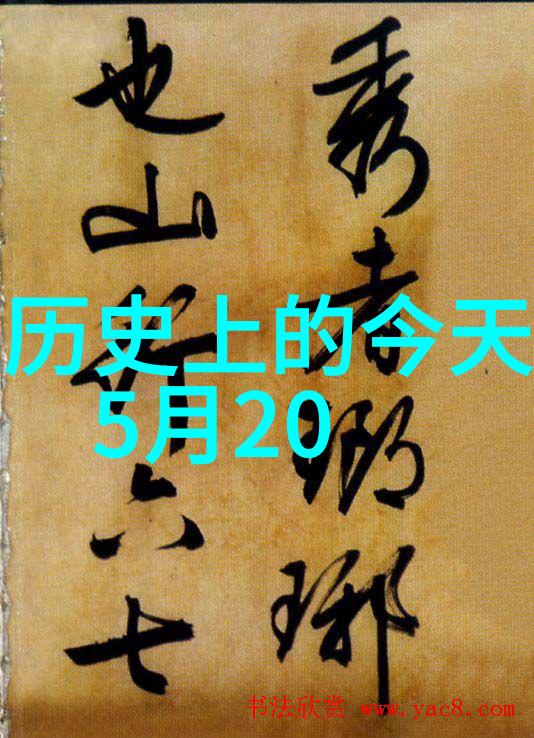 秀者瑯琊
也山行六七
历史上的今天
5月20
书法欣赏 www.yac8.com